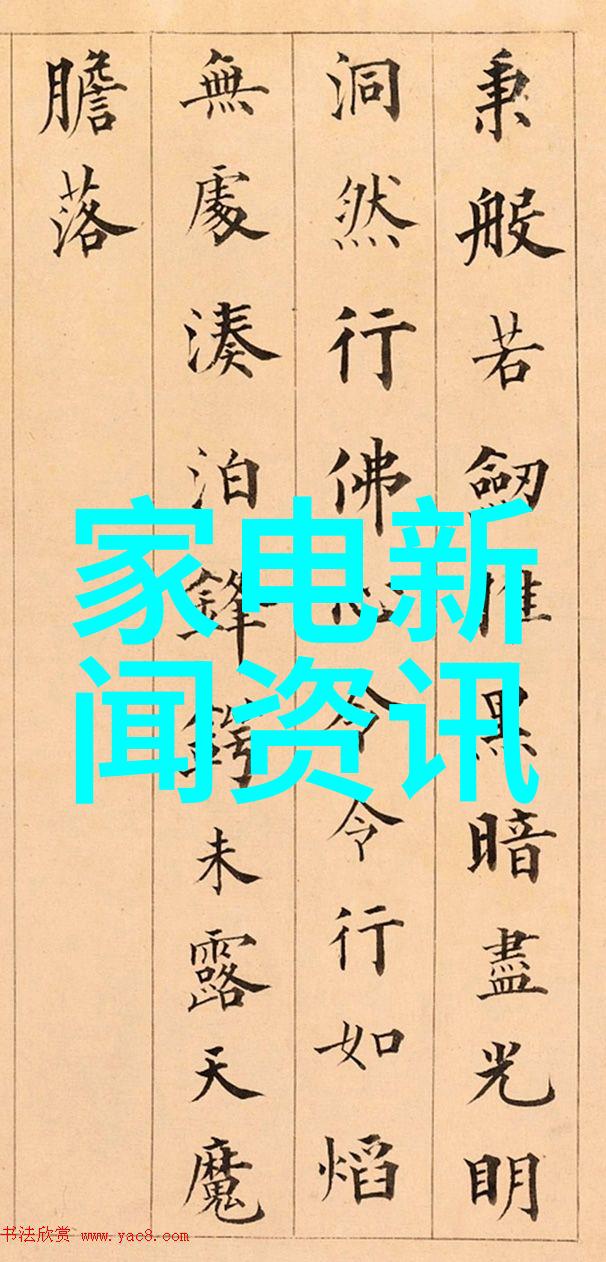 秉般若劒黑暗盡光明
洞然行佛心令令行如熖
無處湊泊鋒鍔未露天魔
膽落
家电新
闻资讯
书法欣赏 www.yac8.com